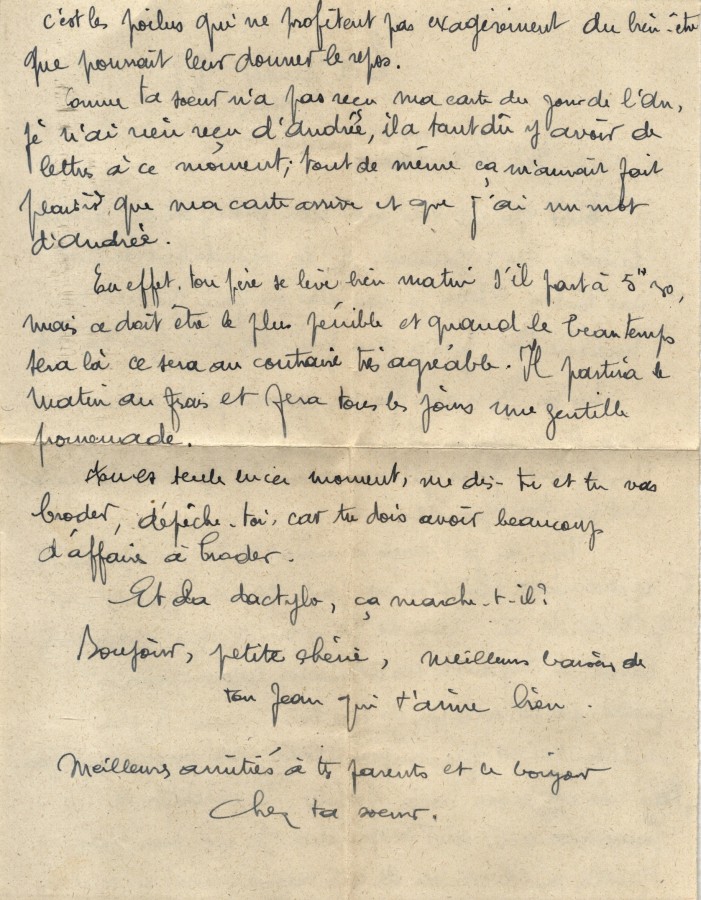 c'est les poilus qui ne profitent pas exagérément du bien-être
que pourrait leur donner le repos.
Comme ta soeur n'a pas reçu ma carte du jour de l'An,
je n'ai rien reçu d'Andrée, il a tant dû y avoir de
lettres à ce moment; tout de même ça m'aurait fait
plaisir que ma carte arrive et que j'ai un mot
d'Andrée.
En effet, ton père se lève bien matin s'il part à 5h30,
mais ce doit être le plus pénible et quand le beau temps
sera là ce sera au contraire très agréable. Il partira le
matin au frais et fera tous les jours une gentille
promenade.
tu es seule en ce moment, me dis-tu et tu vas
broder, dépêche-toi, car tu dois avoir beaucoup
d'affaires à broder.
Et la dactylo, ça marche-t-il?
Bonjour, petite chérie, meilleurs baisers de
ton Jean qui t'aime bien.
Meilleurs amitiés à tes parents et le bonjour
Chez ta soeur.